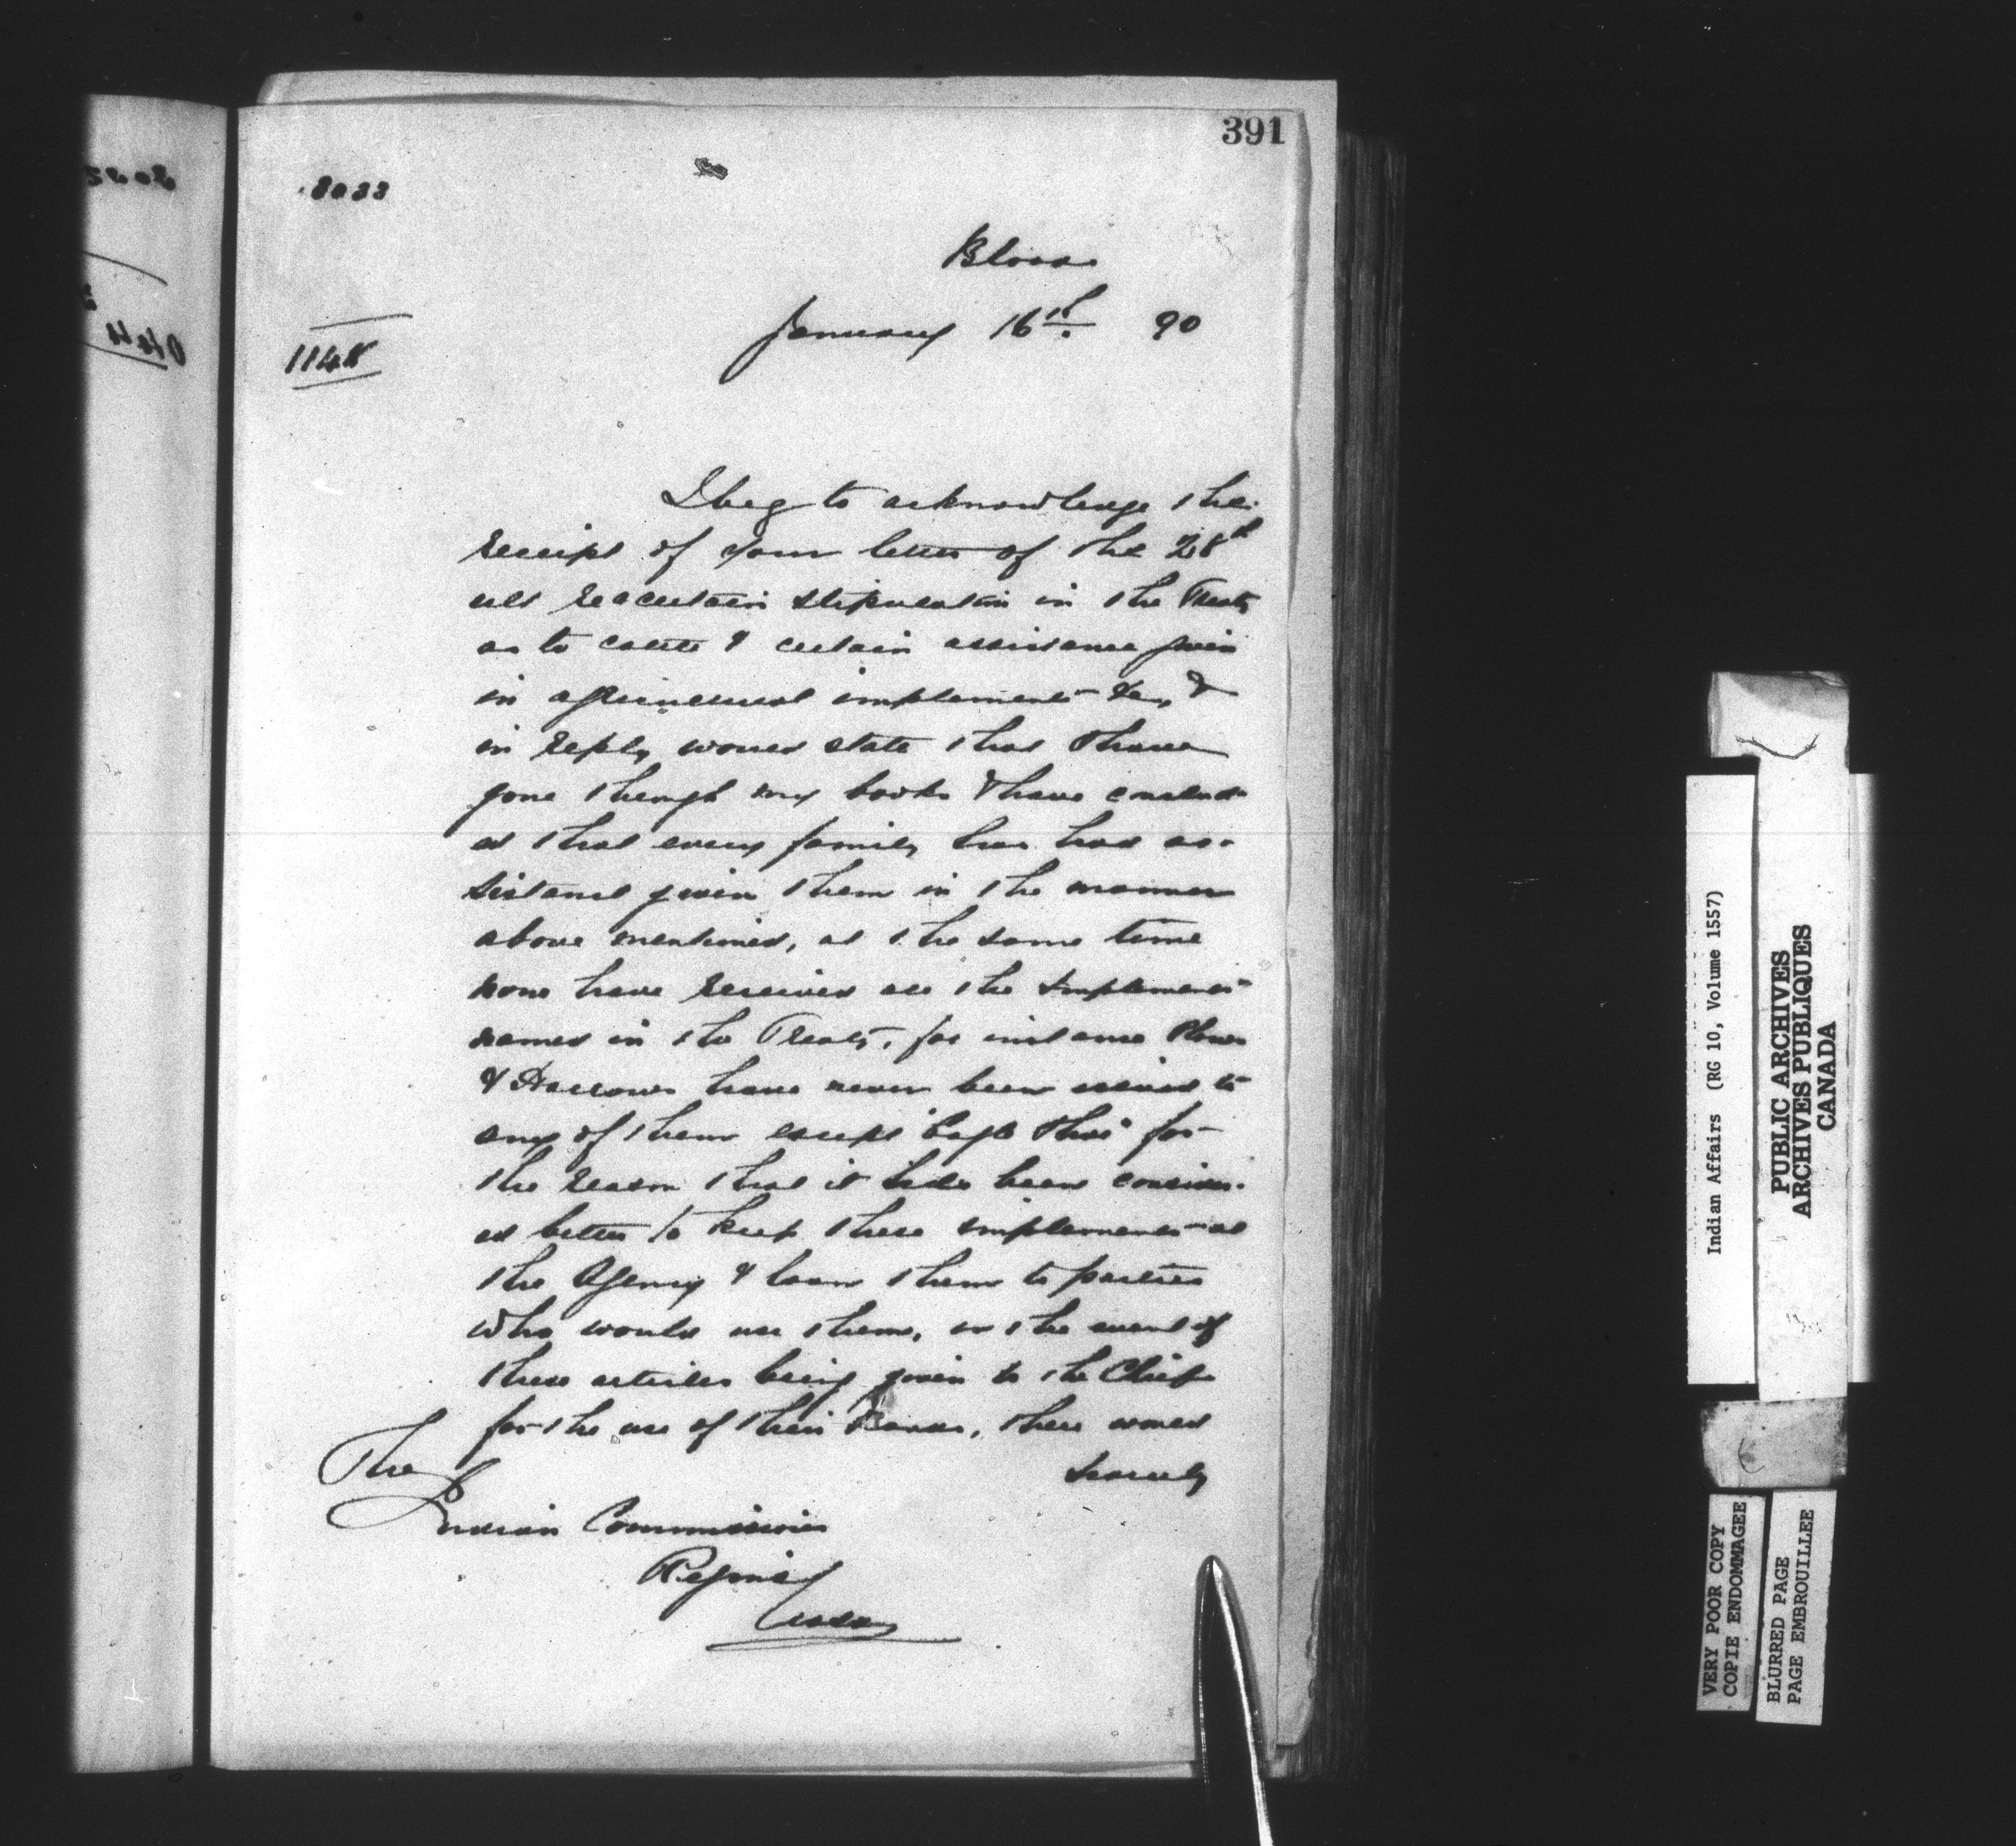 391
8033
Blood
January 16th. 90
1148
I beg to acknowledge the
receipt of your letter of the 28th
ult re certain stipulation in the Treaty
as to cattle & certain assistance given
in agricultural implements &c, &
in reply would state that I have
gone through my books & have conclud-
ed that every family has had as-
sistance given them in the manner
above mentioned, at the same time
none have received all the implements
named in the Treaty, for instance Plows
& Harrows have never been issued to
any of them except Eagle this for
the reason that it has been consider-
ed better to keep these implements at
the Agency & loan them to parties
who would use them, in the event of
these articles being given to the Chiefs
for the use of their Bands, there would
scarcely
The
Indian Commissioner
Regina
Assa
Indian Affairs (RG 10, Volume 1557)
PUBLIC ARCHIVES
ARCHIVES PUBLIQUES
CANADA
VERY POOR COPY
COPIE ENDOMMAGEE
BLURRED PAGE
PAGE EMBROUILLEE